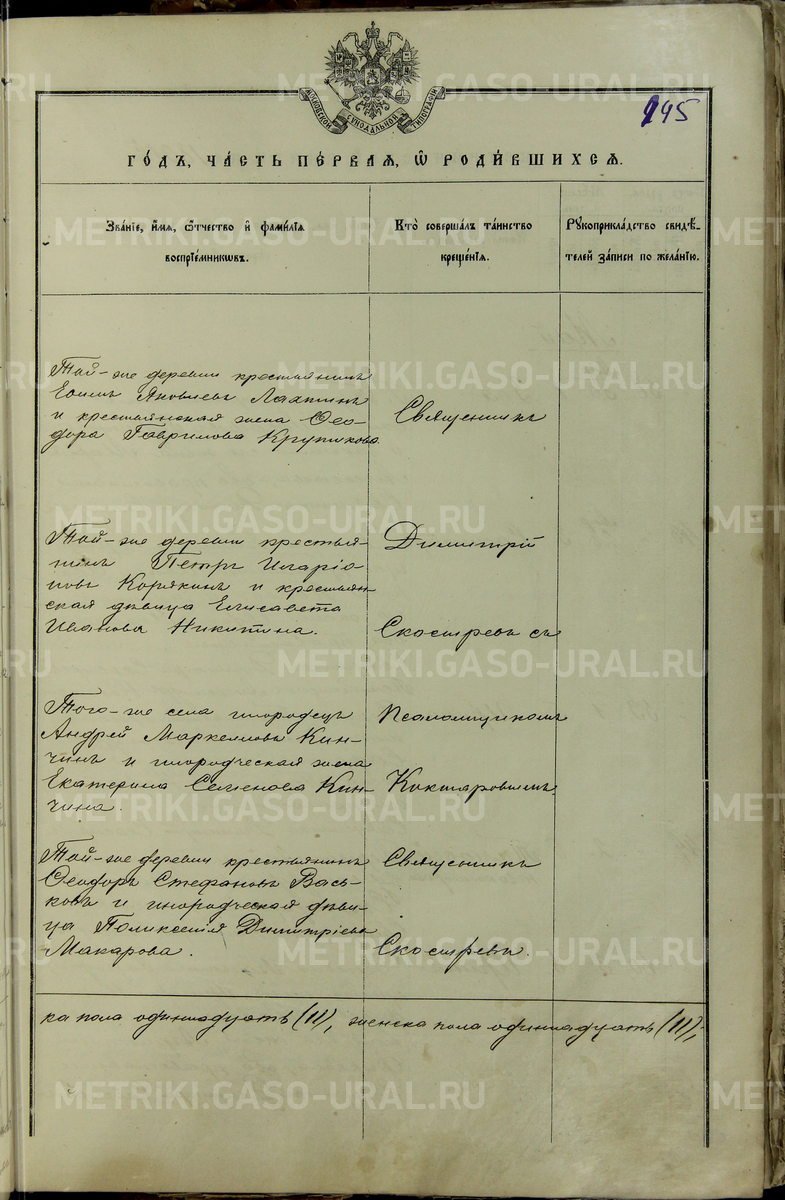 МОСКОВСКОЙ СѴНОДАЛЬНОЙ ТИПОГРАФІИ
195
ГО́ДЪ, ЧА́СТЬ ПЕ́РВАЯ, Ѽ РОДИ́ВШИХСЯ.
Зва́нїе, и҆́мя, ѻ҆́тчество и҆ фами́лїя
воспрїе́мникѡвъ.
Кто̀ соверша́лъ та́инство
креще́нїя.
Рꙋкоприкла́дство свидѣ́-
телей за́писи по жела́нїю.
Той-же деревни крестьянинъ
Яковлевъ Лахтинъ
и крестьянская жена Ѳео-
дора Гаврилова Крутикова
Священникъ
Той-же деревни крестья-
нинъ Петръ Иларіо-
новъ Корякинъ и крестьян-
ская дѣвица Елисавета
Иванова Никитина.
Димитрій
Скостревъ съ
Того-же села инородецъ
Андрей Маркелловъ Кин-
чинъ и инородческая жена
Екатерина Семенова Кин-
чина.
Псаломщикомъ
Кокшаровымъ.
Той-же деревни крестьянинъ
Ѳеодоръ Стефановъ Вась-
ковъ и инородческая дѣви-
ца Поликсенія Димитріева
Макарова.
Священникъ
Скостревъ.
ка пола одиннадцать (11), женска пола одиннадцать (11),
METRIKI.GASO-URAL.RU